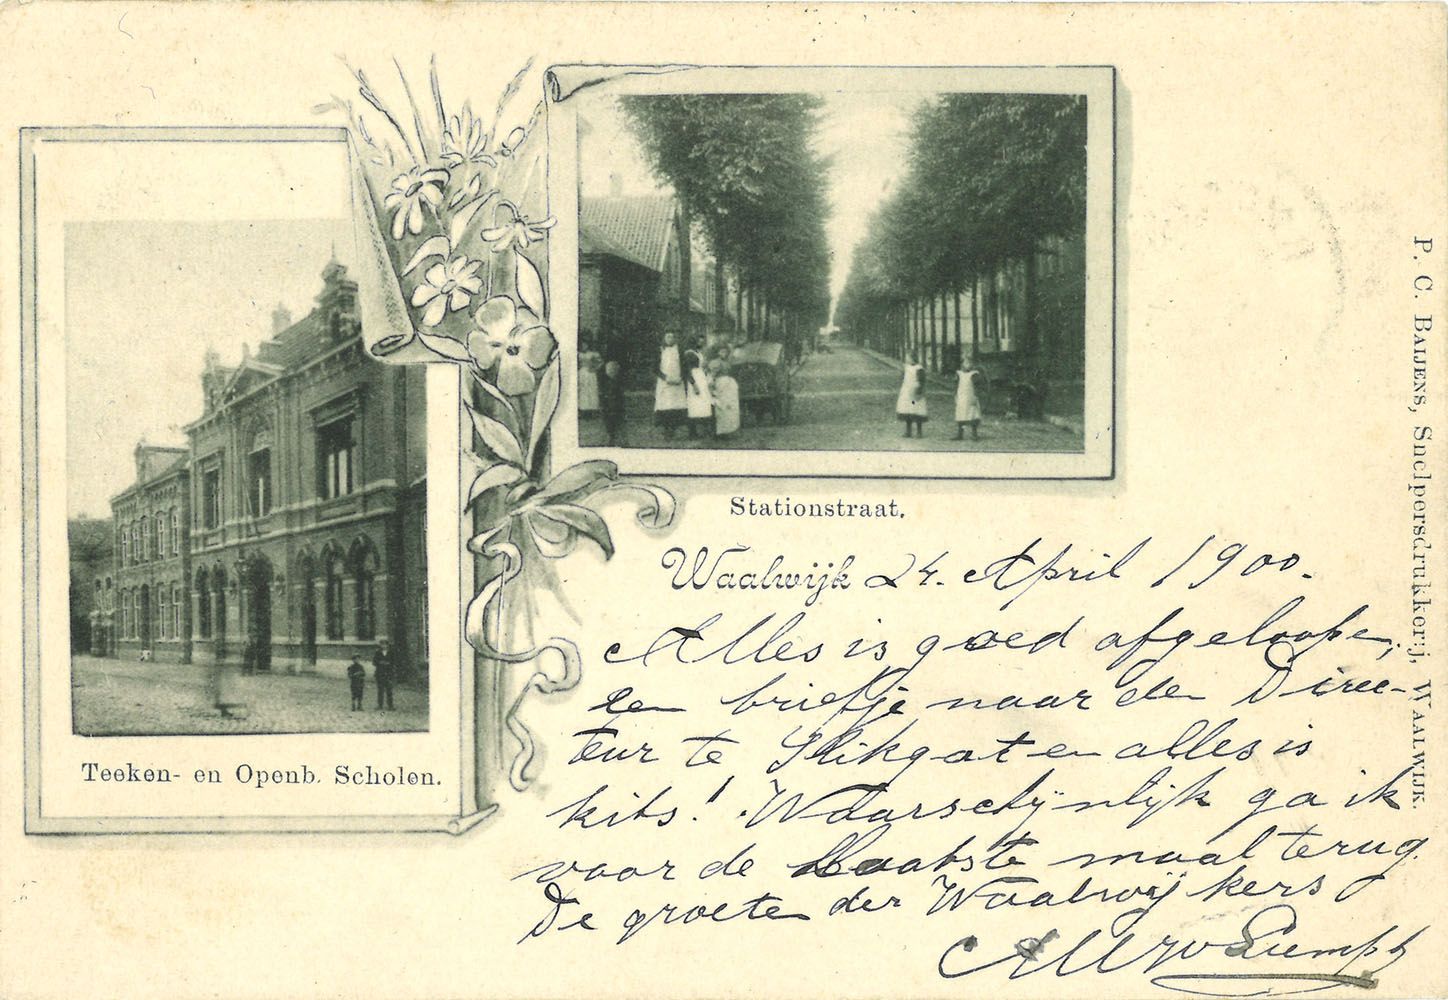 Stationstraat.
Teeken- en Openb. Scholen.
Waalwijk 24. April 1900.
Alles is goed afgeloopen,
een briefje naar den Direc-
teur te Slikgat en alles is
kits! Waarschijnlijk ga ik
voor de laatste maal terug.
De groeten der Waalwijkers
P. C. BAIJENS, Snelpersdrukkerij, WAALWIJK.